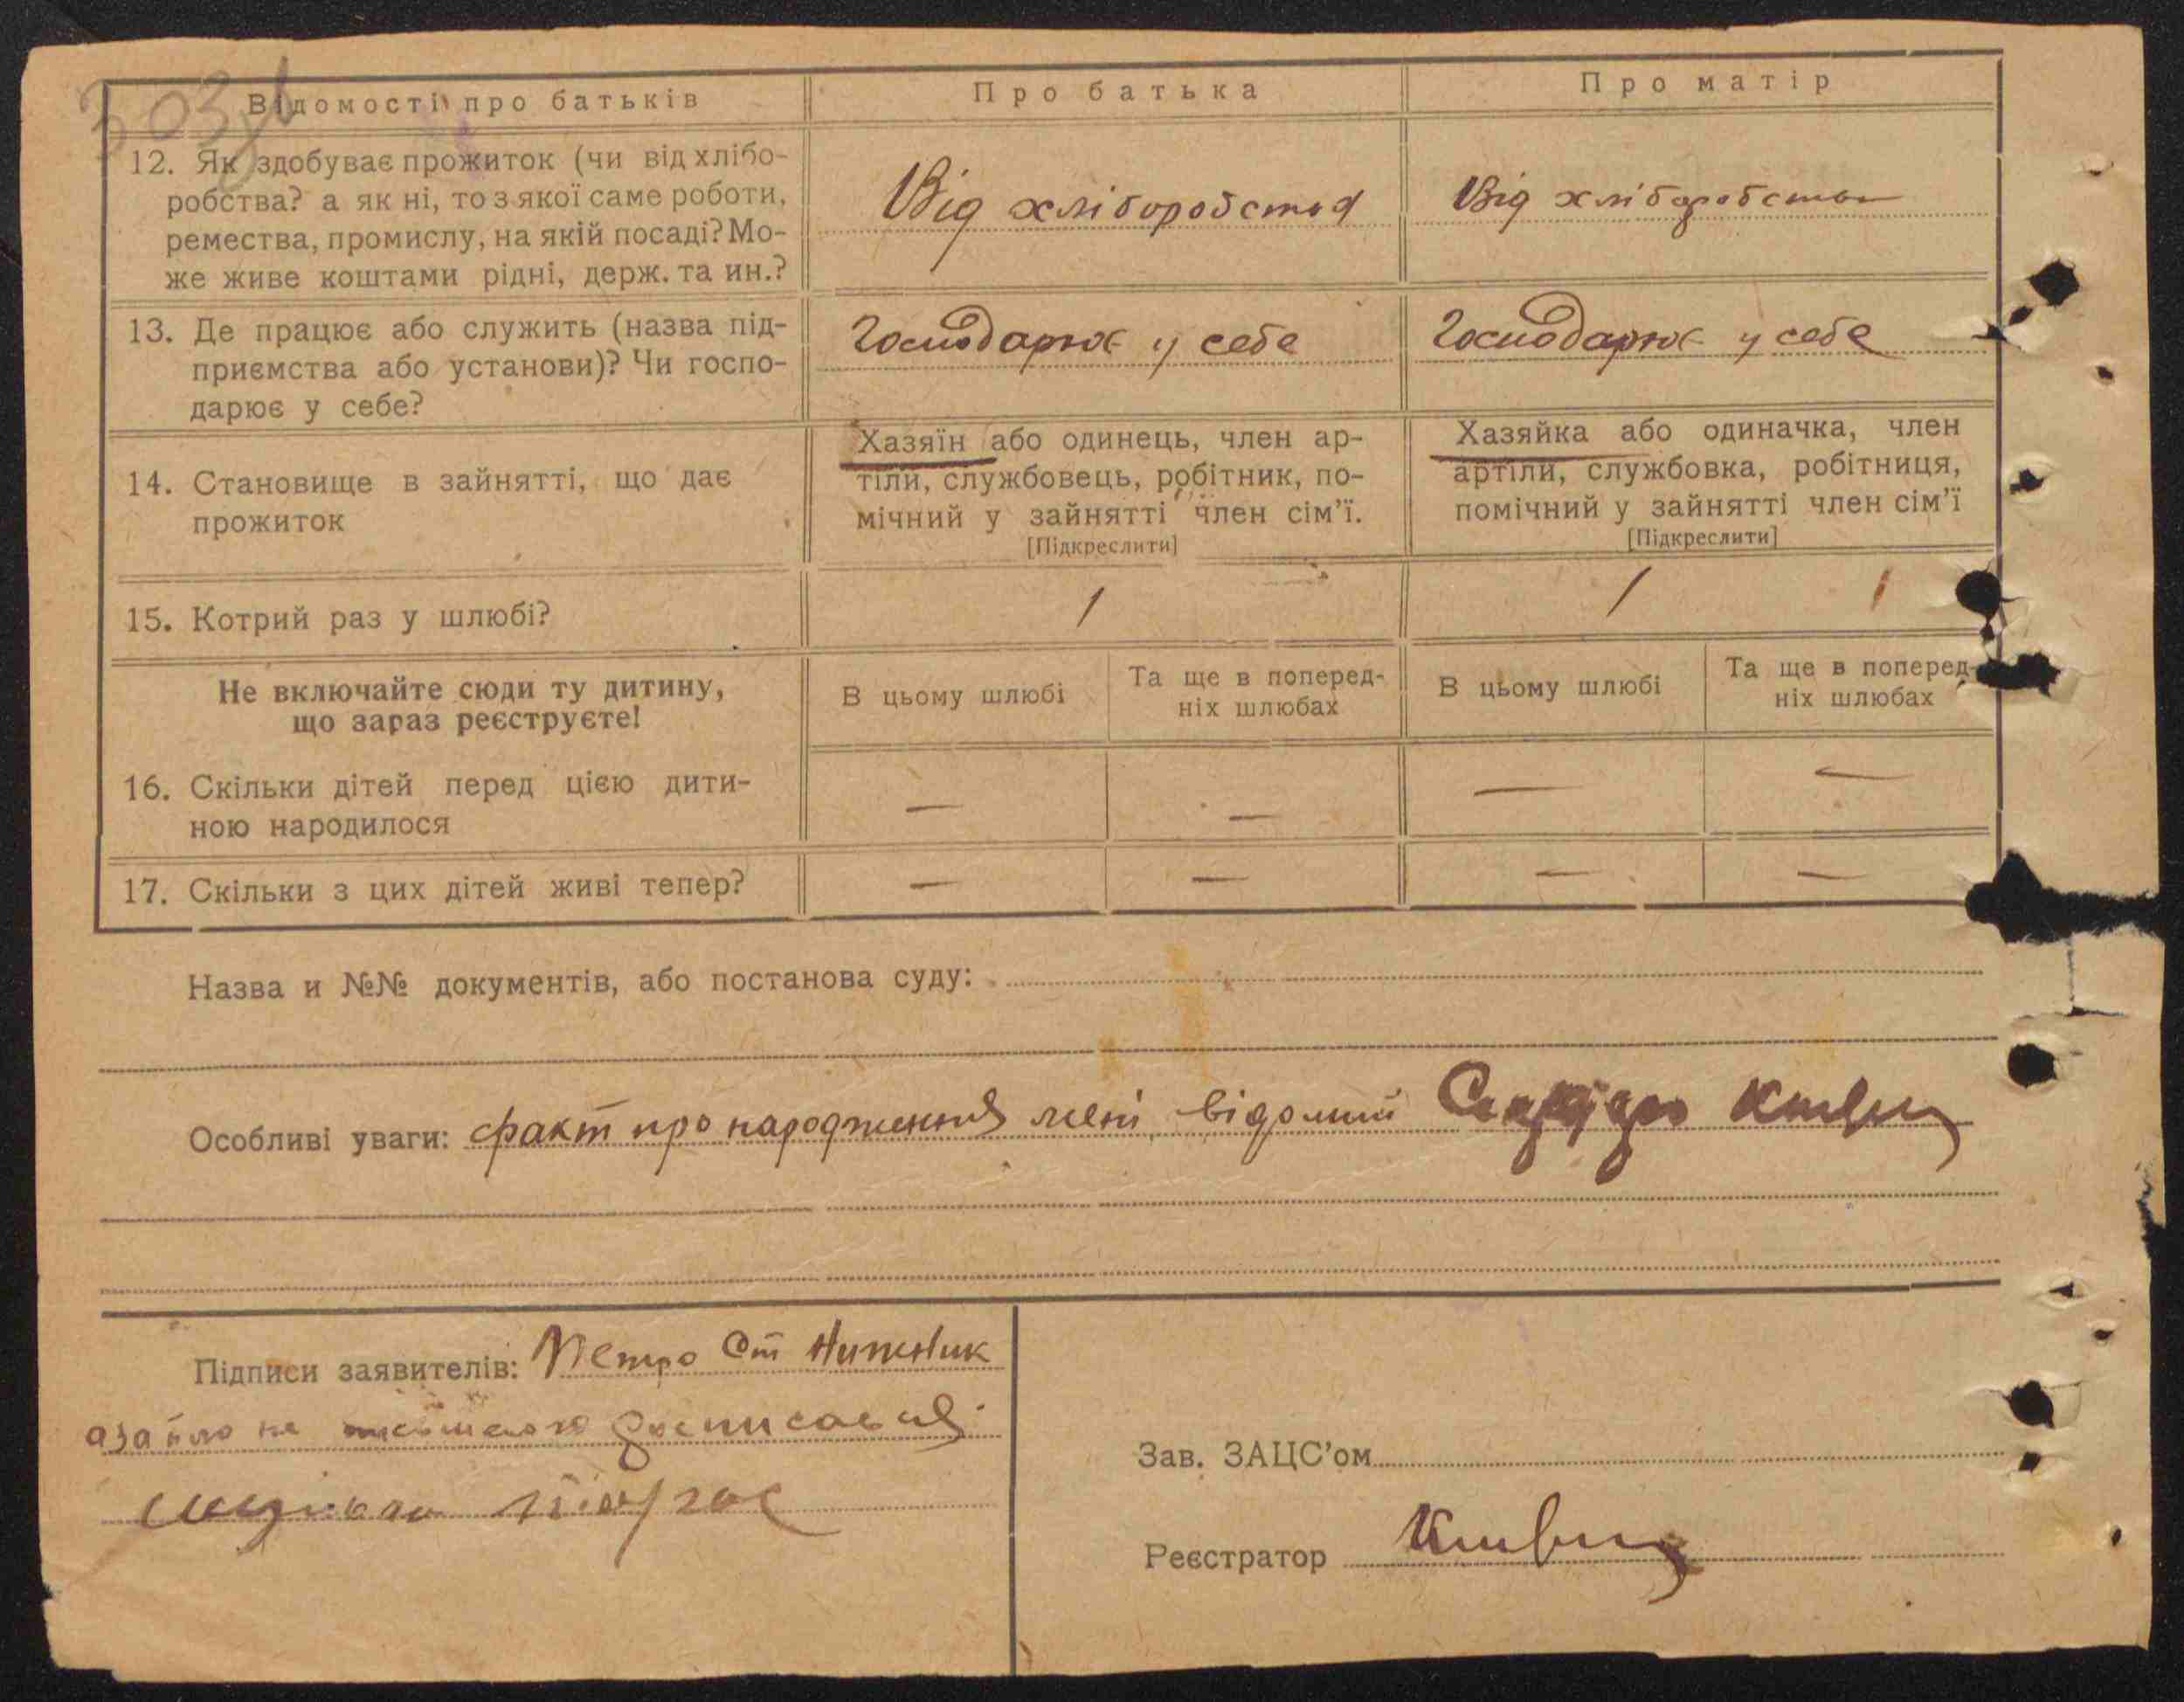 303
Відомості про батьків
Про батька
Про матір
12. Як здобуває прожиток (чи від хлібо-
робства? а як ні, то з якої саме роботи,
ремества, промислу, на якій посаді? Мо-
же живе коштами рідні, держ. та ин.?
Від хліборобства
Від хліборобства
13. Де працює або служить (назва під-
приємства або установи)? Чи госпо-
дарює у себе?
Господарює у себе
Господарює у себе
14. Становище в зайнятті, що дає
прожиток
Хазяїн або одинець, член ар-
тіли, службовець, робітник, по-
мічний у зайнятті член сім'ї.
[Підкреслити]
Хазяйка або одиначка, член
артіли, службовка, робітниця,
помічний у зайнятті член сім'ї
[Підкреслити]
15. Котрий раз у шлюбі?
1
1
1
Не включайте сюди ту дитину,
що зараз реєструєте!
В цьому шлюбі
Та ще в поперед-
ніх шлюбах
В цьому шлюбі
Та ще в поперед-
ніх шлюбах
16. Скільки дітей перед цією дити-
ною народилося
— — — —
17. Скільки з цих дітей живі тепер?
— — — —
Назва и №№ документів, або постанова суду:
Особливі уваги: факт про народження мені відомий
Підписи заявителів: Петро Ст Нижник
росписався
Зав. ЗАЦС'ом
Реєстратор